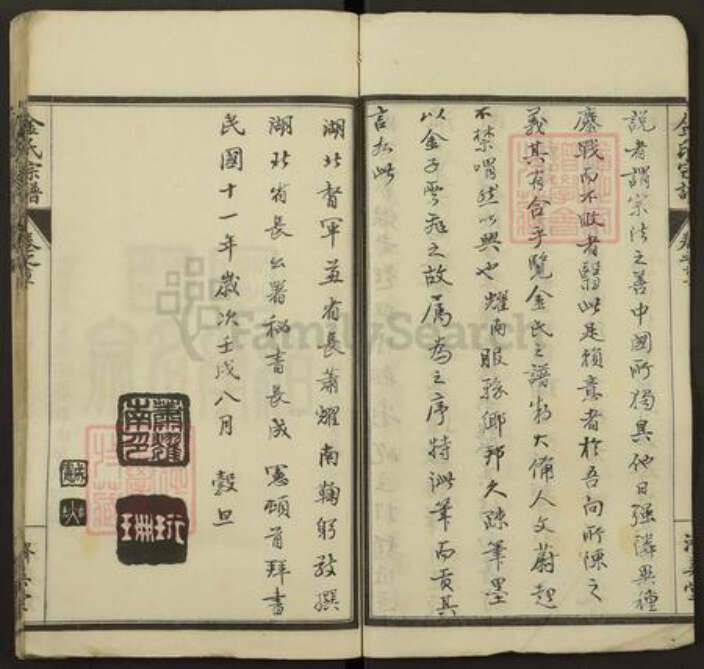 說者謂宗法之善中國所獨具他日强隣異種
鏖戰而不敗者繄此是賴意者於吾向所陳之
義其有合乎覽金氏之譜牒大備人文蔚起
不禁喟然以興也耀南服務鄉邦久疎筆墨
以金子雲之故屬為之序特泚筆而貢其
言如此
湖北督軍兼省長蕭耀南鞠躬敬撰
湖北省長公署秘書長成憲頓首拜書
民國十一年歲次壬戌八月 穀旦
蕭耀南印
珩珊
金氏宗譜
卷之首
FamilySearch